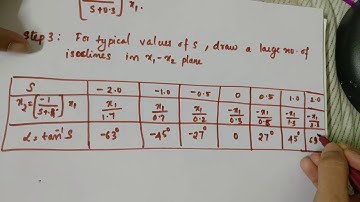 [-1/(S+0.3)] x₁.
Step 3: For typical values of S, draw a large no. of
isoclines in x₁-x₂ plane
S | -2.0 | -1.0 | -0.5 | 0 | 0.5 | 1.0 | 2.0
x₂ = [-1/(S+ ] x₁ | x₁/1.7 | x₁/0.7 | x₁/0.2 | -x₁/0.3 | -x₁/0.8 | -x₁/1.3 | -x₁/2.3
α = tan⁻¹ S | -63° | -45° | -27° | 0 | 27° | 45° | 63°